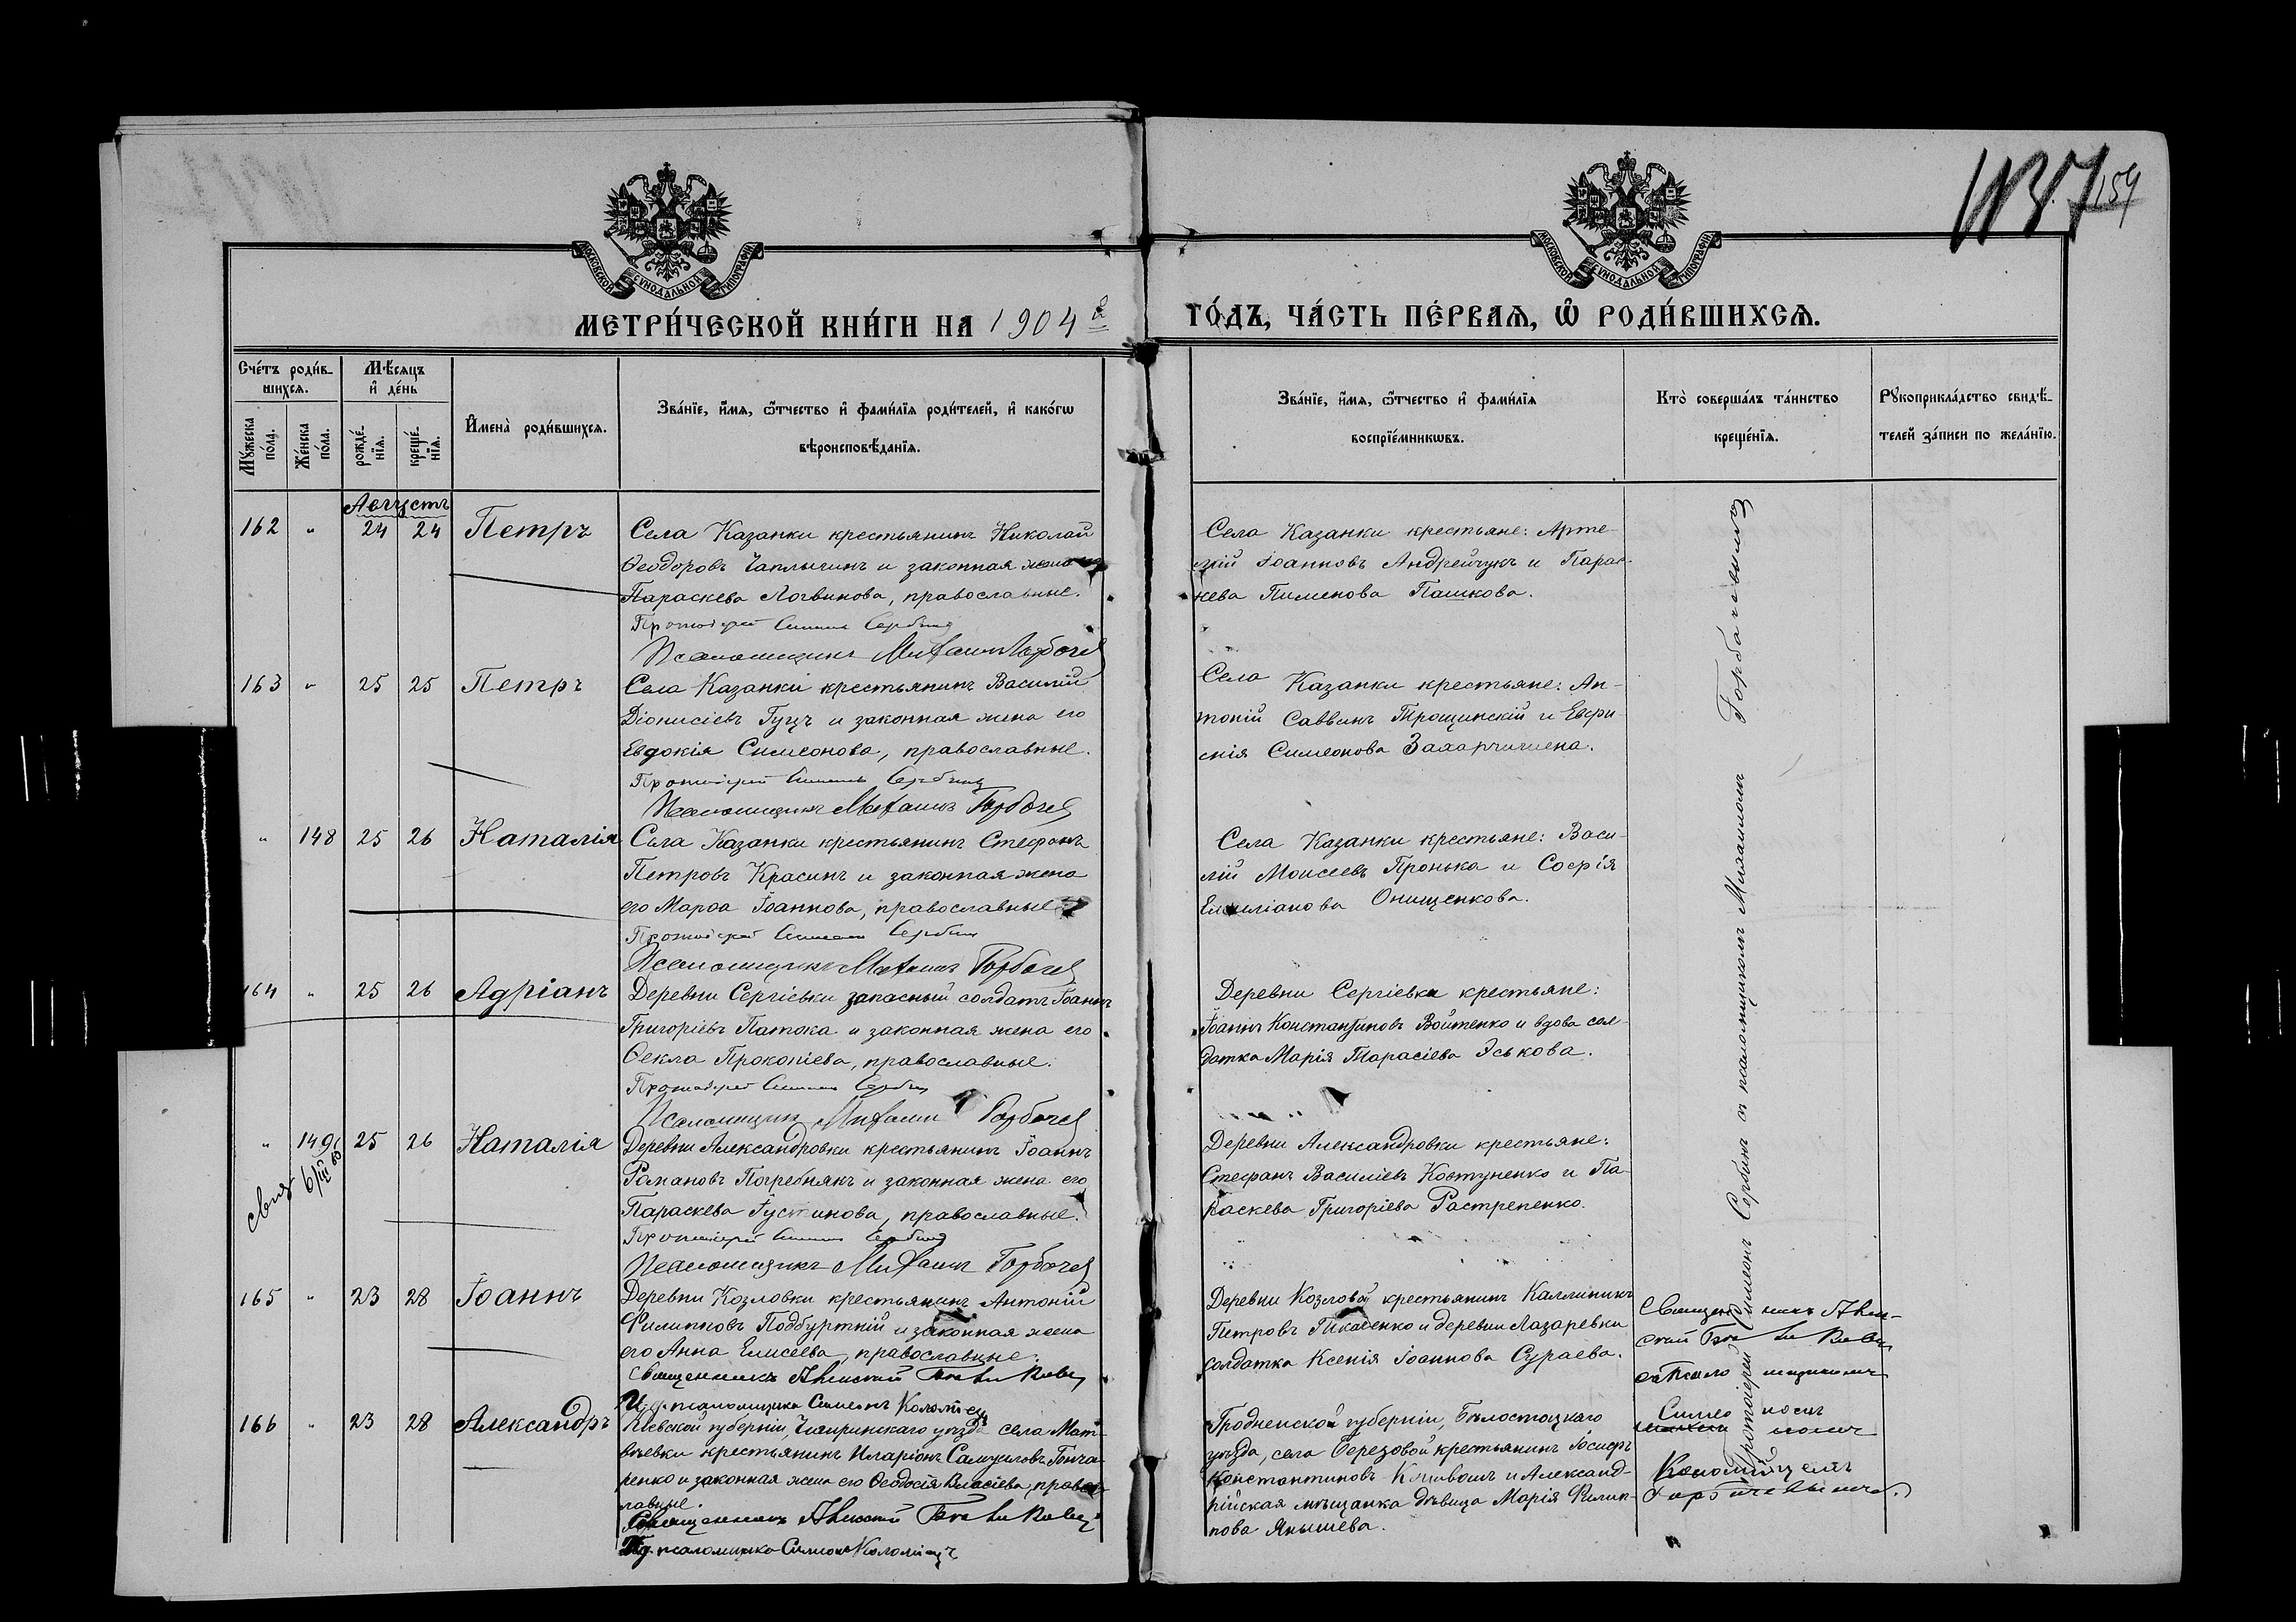 154
МОСКОВСКОЙ СѴНОДАЛЬНОЙ ТИПОГРАФІИ
МОСКОВСКОЙ СѴНОДАЛЬНОЙ ТИПОГРАФІИ
МЕТРИ́ЧЕСКОЙ КНИ́ГИ НА 1904 г
ГО́ДЪ, ЧА́СТЬ ПЕ́РВАѦ, Ѡ҆ РОДИ́ВШИХСѦ.
Сче́тъ роди́в-
шихсѧ.
Мѣ́сѧцъ
и҆ де́нь
Мꙋ́жеска
по́ла.
Же́нска
по́ла.
рожде́-
нїѧ.
креще́-
нїѧ.
И҆мена̀ роди́вшихсѧ.
Зва́нїе, и҆́мѧ, ѻ҆́тчество и҆ фами́лїѧ роди́телей, и҆ како́гѡ
вѣроисповѣ́данїѧ.
Зва́нїе, и҆́мѧ, ѻ҆́тчество и҆ фами́лїѧ
воспрїе́мникѡвъ.
Кто̀ соверша́лъ та́инство
креще́нїѧ.
Рꙋкоприкла́дство свидѣ́-
телей за́писи по жела́нїю.
Августъ
162 " 24 24 Петръ
Села Казанки крестьянинъ Николай
Ѳеодоровъ Чаплыгинъ и законная жена
Параскева Логвинова, православные.
Протоіерей Симеонъ Сербинъ
Псаломщикъ Михаилъ Горбачев
Села Казанки крестьяне: Арте-
мій Іоанновъ Андрейчукъ и Парас-
кева Пименова Пашкова.
163 " 25 25 Петръ
Села Казанки крестьянинъ Василій
Діонисіевъ Гуцъ и законная жена его
Евдокія Симеонова, православные.
Протоіерей Симеонъ Сербинъ
Псаломщикъ Михаилъ Горбачев
Села Казанки крестьяне: Ан-
тоній Саввинъ Трощинскій и Евфи-
мія Симеонова
" 148 25 26 Наталія
Села Казанки крестьянинъ Стефанъ
Петровъ Красинъ и законная жена
его Марѳа Іоаннова, православные
Протоіерей Симеонъ Сербинъ
Псаломщикъ Михаилъ Горбачев
Села Казанки крестьяне: Васи-
лій Моисеевъ Пронька и Софія
Емиліанова Онищенкова.
164 " 25 26 Адріанъ
Деревни Сергіевки запасный солдатъ Іоаннъ
Григоріевъ Патока и законная жена его
Ѳекла Прокопіева, православные.
Протоіерей Симеонъ Сербинъ
Псаломщикъ Михаилъ Горбачев
Деревни Сергіевки крестьяне:
Іоаннъ Константиновъ Войтенко и вдова сол-
датка Марія Тарасіева Эськова.
" 149 25 26 Наталія
6/III
Деревни Александровки крестьянинъ Іоаннъ
Романовъ Погребнякъ и законная жена его
Параскева Іустинова, православные.
Протоіерей Симеонъ Сербинъ
Псаломщикъ Михаилъ Горбачев
Деревни Александровки крестьяне:
Стефанъ Василіевъ Ковтуненко и Па-
раскева Григоріева Растрепенко.
165 " 23 28 Іоаннъ
Деревни Козловки крестьянинъ Антоній
Филипповъ Подбуртній и законная жена
его Анна Елисеева, православные.
Священникъ
И. д. псаломщика Симеонъ Коломіецъ
Деревни Козловой крестьянинъ Каллиникъ
Петровъ Ткаченко и деревни Лазаревки
солдатка Ксенія Іоаннова Сураева.
166 " 23 28 Александръ
Кіевской губерніи, Чигиринскаго уѣзда села Мат-
вѣевки крестьянинъ Иларіонъ Самуиловъ Гонча-
ренко и законная жена его Ѳеодосія Власіева, право-
лавные.
Священникъ
И. д. псаломщика Симеонъ Коломіецъ
Гродненской губерніи, Бѣлостоцкаго
уѣзда, села Березовой крестьянинъ Іосифъ
Константиновъ и Александ-
рійская мѣщанка дѣвица Марія Филип-
пова Янышева.
Протоіерей Симеонъ Сербинъ съ псаломщикомъ Михаиломъ Горбачевымъ